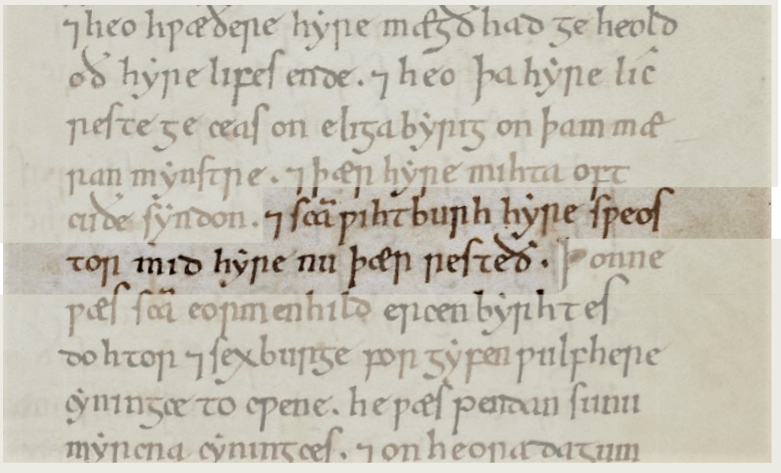 ⁊ heo hƿæðere hyre mægðhad ge heold
oð hyre lifes ende. ⁊ heo þa hyre lic
reste ge ceas on eligabyrig on þam mæ
ran mynstre. ⁊ þær hyre mihta oft
cuðe syndon. ⁊ sc̄a ƿihtburh hyre sƿeos
tor mid hyre nu þær resteð. Þonne
ƿæs sc̄a eormenhild ercenbyrhtes
dohtor ⁊ sexburge forgyfen ƿulfhere
cyninge to cƿene. he ƿæs pendan sunu
myrcna cyninges. ⁊ on heora dagum